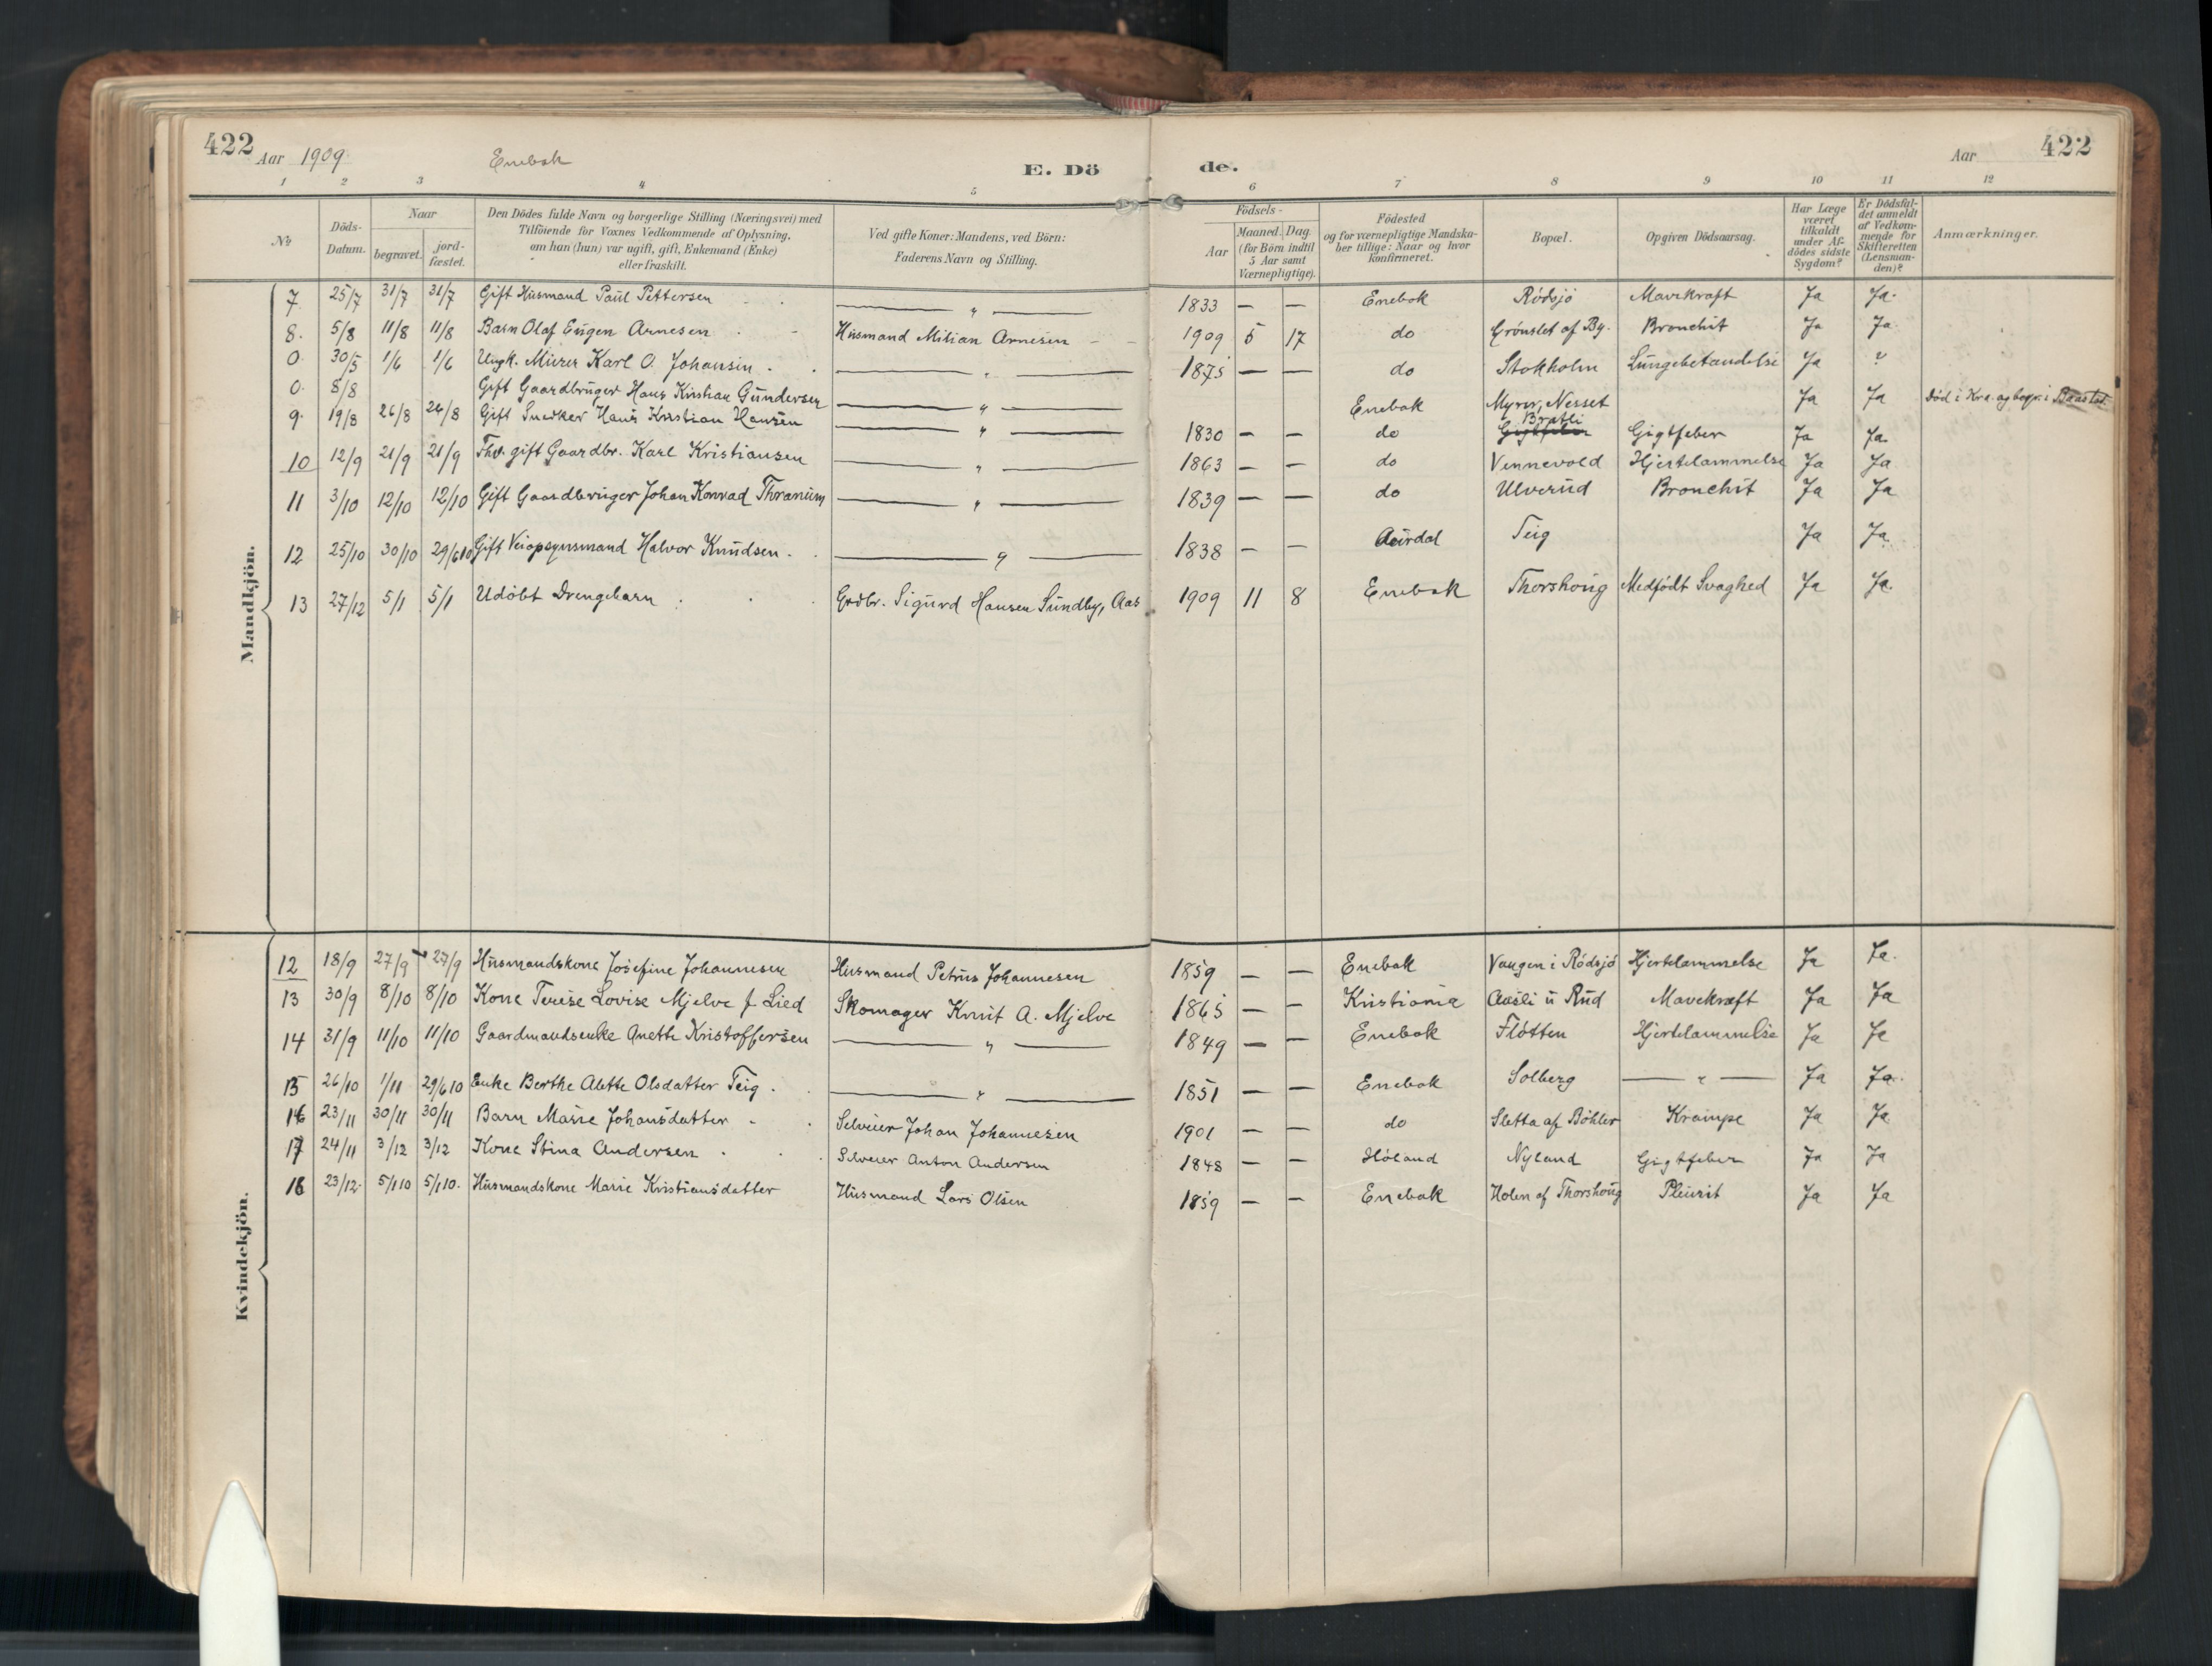 422 Aar 1909 Enebak E. Dö de. Aar 422
1 2 3 4 5 6 7 8 9 10 11 12
No
Döds-Datum.
Naar
begravet.
jord-fæstet.
Den Dödes fulde Navn og borgerlige Stilling (Næringsvei) med
Tilföiende for Voxnes Vedkommende af Oplysning,
om han (hun) var ugift, gift, Enkemand (Enke)
eller fraskilt.
Ved gifte Koner: Mandens, ved Börn:
Faderens Navn og Stilling.
Födsels-
Aar
Maaned. Dag.
(for Börn indtil
5 Aar samt
Værnepligtige).
Födested
og for værnepligtige Mandska-
ber tillige: Naar og hvor
konfirmeret.
Bopæl.
Opgiven Dödsaarsag.
Har Læge
været
tilkaldt
under Af-
dödes sidste
Sygdom?
Er Dödsfal-
det anmeldt
af Vedkom-
mende for
Skifteretten
(Lensman-
den)?
Anmærkninger.
Mandkjön.
7 25/7 31/7 31/7 Gift Husmand Paul Pettersen — " — 1833 — — Enebak Rödsjö Mavekræft Ja Ja.
8. 5/8 11/8 11/8 Barn Olaf Eugen Arnesen Husmand Milian Arnesen 1909 5 17 do Grönslet af By. Bronchit Ja Ja
0 30/5 1/6 1/6 Ungk. Murer Karl O. Johansen — " — 1875 — — do Stokholm Lungebetændelse Ja "
0. 8/8 Gift Gaardbruger Hans Kristian Gundersen — " — Enebak Myrer, Nesset Ja Ja Död i Kra. og begr. i
9. 19/8 26/8 26/8 Gift Snedker Hans Kristian Hansen — " — 1830 — — do Gigtfeber Bratli Gigtfeber Ja Ja.
10 12/9 21/9 21/9 Fhv. gift Gaardbr. Karl Kristiansen — " — 1863 — — do Vennevold Hjertelammelse Ja Ja
11 3/10 12/10 12/10 Gift Gaardbruger Johan Konrad Thranum — " — 1839 — — do Ulverud Bronchit Ja Ja
12 25/10 30/10 29/6 10 Gift Veiopsynsmand Halvor Knudsen — " — 1838 — — Aurdal Teig Ja Ja.
13 27/12 5/1 5/1 Udöbt Drengebarn Grdbr. Sigurd Hansen Sundby, Aas 1909 11 8 Enebak Thorshoug Medfödt Svaghed Ja Ja.
Kvindekjön.
12 18/9 27/9 27/9 Husmandskone Josefine Johannesen Husmand Petrus Johannesen 1859 — — Enebak Vangen i Rödsjö Hjertelammelse Ja Ja.
13 30/9 8/10 8/10 Kone Terese Lovise Mjelve f Lied Skomager Knut A. Mjelve 1865 — — Kristiania Aasli u Rud Mavekræft Ja Ja
14 31/9 11/10 11/10 Gaardmandsenke Anette Kristoffersen — " — 1849 — — Enebak Flötten Hjertelammelse Ja Ja
15 26/10 1/11 29/6 10 Enke Berthe Alette Olsdatter Teig. — " — 1851 — — Enebak Solberg — " — Ja Ja.
16 23/11 30/11 30/11 Barn Marie Johansdatter Selveier Johan Johannesen 1901 — — do Sletta af Böhler Krampe Ja Ja
17 24/11 3/12 3/12 Kone Stina Andersen Selveier Anton Andersen 1848 — — Höland Nyland Gigtfeber Ja Ja
18 23/12. 5/1 10 5/1 10. Husmandskone Marie Kristiansdatter Husmand Lars Olsen 1859 — — Enebak Holen af Thorshoug Pleurit Ja Ja